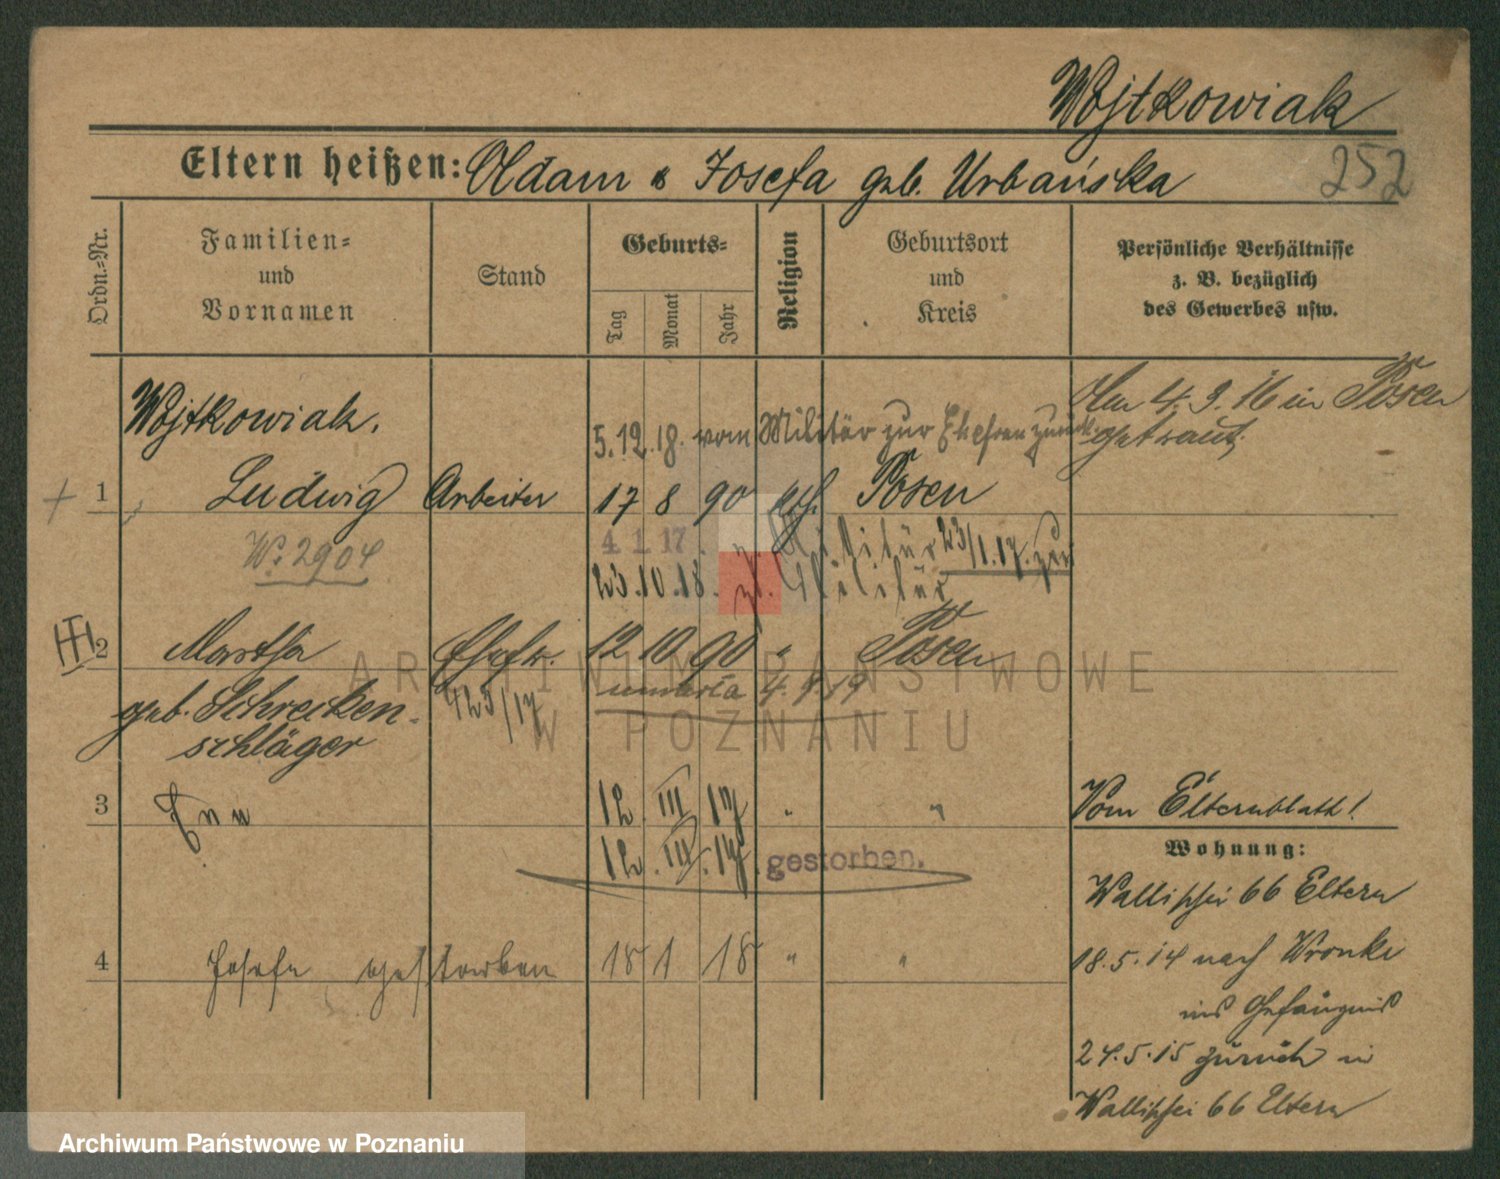 Wojtkowiak
252
Eltern heißen: Adam & Josefa geb. Urbańska
Ordn.-Nr.
Familien-
und
Vornamen
Stand
Geburts-
Tag
Monat
Jahr
Religion
Geburtsort
und
Kreis
Persönliche Verhältnisse
z. B. bezüglich
des Gewerbes usw.
Am 4. 9. 16 in Posen
getraut.
Wojtkowiak.
5.12.18. vom Militär zur Ehefrau zurück.
1 Ludwig Arbeiter 17 8 90 kth. Posen
W: 2904
4. 1. 17. z. Militär 23/1.17. zur.
23.10.18. z. Militär
2 Martha Ehefr. 12 10 90 " Posen
geb. Schrecken-
schläger
423/17
umarła 4. 9. 19
3 12 III 17 " "
12. III. 17. gestorben.
4 Josefa gestorben 18 1 18 " "
Vom Elternblatt!
Wohnung:
Wallischei 66 Eltern
18.5.14 nach Wronke
ins Gefängnis
24.5.15 zurück in
Wallischei 66 Eltern
ARCHIWUM PAŃSTWOWE
W POZNANIU
Archiwum Państwowe w Poznaniu